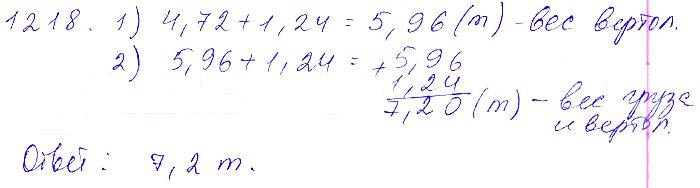 1218. 1) 4,72 + 1,24 = 5,96 (т) - вес вертол.
2) 5,96 + 1,24 = + 5,96
1,24
7,20 (т) - вес груза
и вертол.
Ответ: 7,2 т.